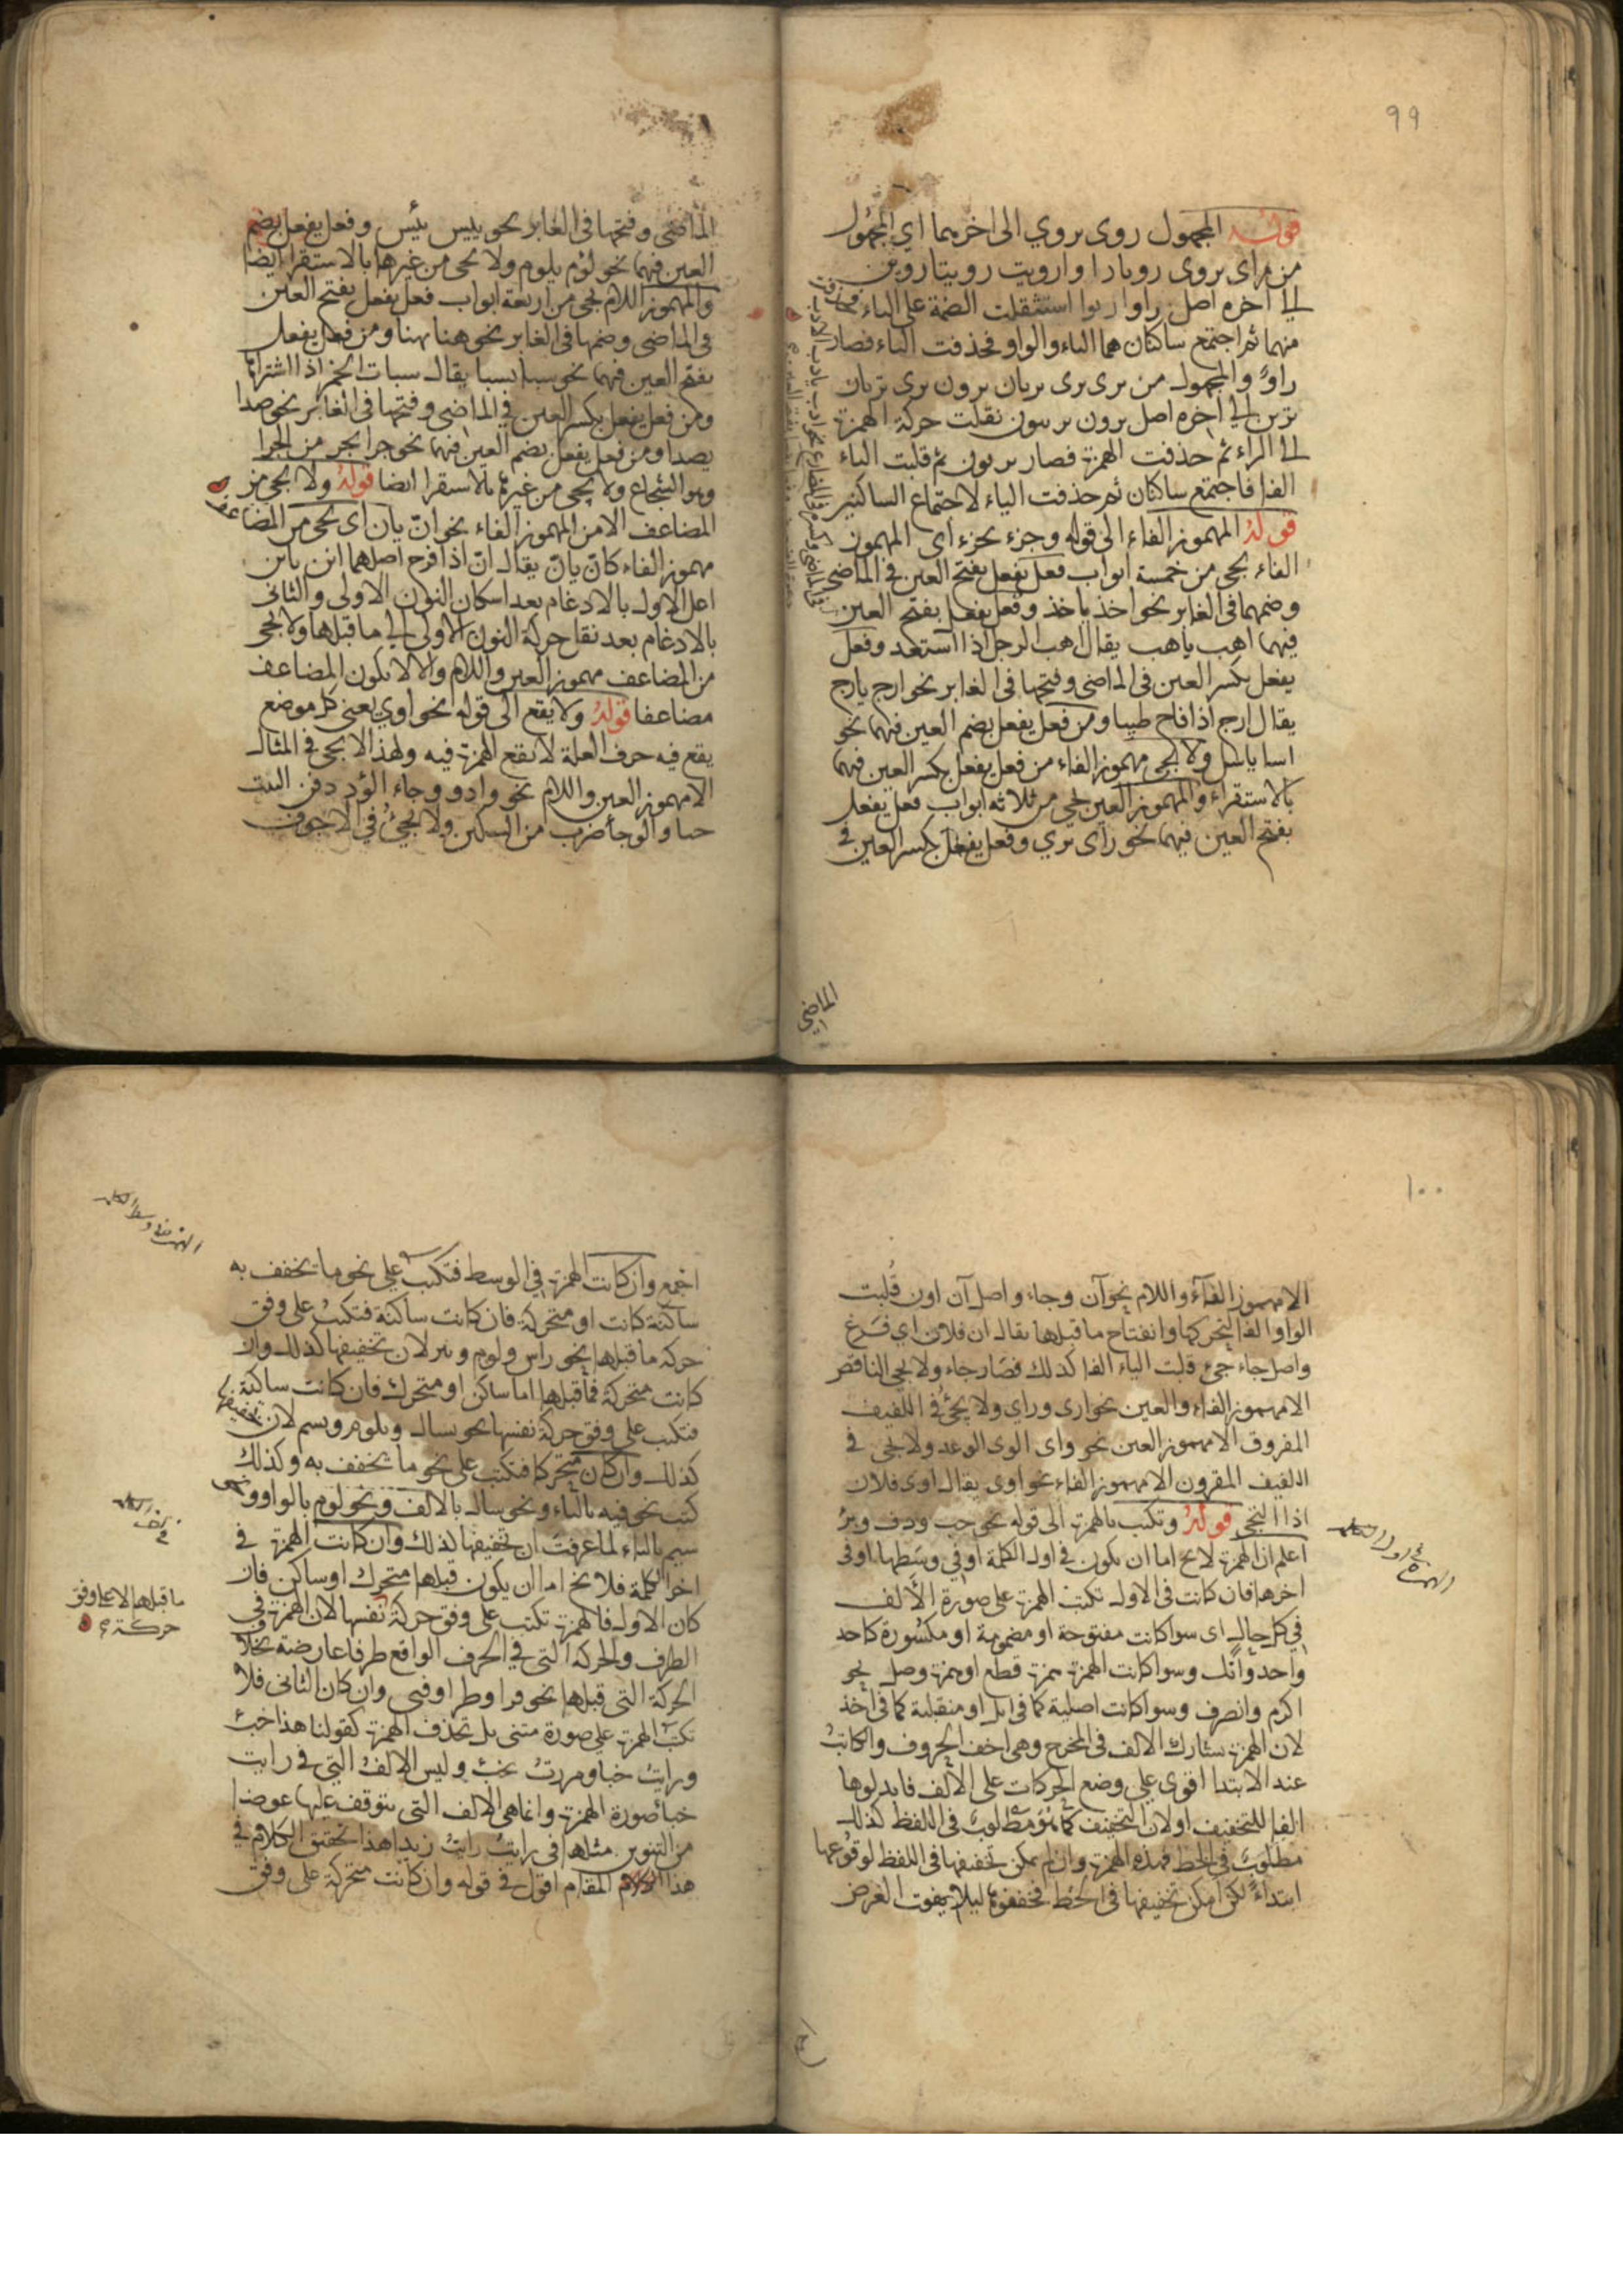 ٩٩
قوله المجهول روى يروي الى اخرهما اي المجهول
من راى يروى
الى اخره اصل راوا استثقلت الضمة على الياء فحذفت
منهما ثم اجتمع ساكنان هما الياء والواو فحذفت الياء فصار
راو والمجهول من يرى يرى يريان يرون ترى تريان
ترين الى اخره اصل يرون نقلت حركة الهمزة
الى الراء ثم حذفت الهمزة فصار يريون ثم قلبت الياء
الفا فاجتمع ساكنان ثم حذفت الياء لاجتماع الساكنين
قوله المهموز الفاء الى قوله وجزء يجزء اى المهموز
الفاء يجى من خمسة ابواب فعل يفعل بفتح العين في الماضى
وضمها فى الغابر نحو اخذ ياخذ وفعل يفعل بفتح العين
فيهما اهب ياهب يقال اهب الرجل اذا استعد وفعل
يفعل بكسر العين فى الماضى وفتحها فى الغابر نحو ارج يارج
يقال ارج اذا فاح طيبا ومن فعل يفعل بضم العين فيهما نحو
اسل ياسل ولا يجى مهموز الفاء من فعل يفعل بكسر العين فيهما
بالاستقراء والمهموز العين يجى من ثلاثة ابواب فعل يفعل
بفتح العين فيهما نحو راى يري وفعل يفعل بكسر العين في
الماضى
الماضى وفتحها فى الغابر نحو ييس يئس وفعل يفعل بضم
العين فيهما نحو لؤم يلوم ولا يجى من غيرها بالاستقرا ايضا
والمهموز اللام يجى من اربعة ابواب فعل يفعل بفتح العين
فى الماضى وضمها فى الغابر نحو هنا يهنا ومن فعل يفعل
بفتح العين فيهما نحو سبا يسبا يقال سبات الخمر اذا اشتراها
ومن فعل يفعل بكسر العين في الماضى وفتحها فى الغابر نحو صدا
يصدا ومن فعل يفعل بضم العين فيهما نحو جرا يجر من الجرا
وهو الشجاع ولا يجى من غيرها بالاستقرا ايضا قوله ولا يجى من
المضاعف الا من المهموز الفاء نحو ان يان اى يجى من المضاعف
مهموز الفاء كان يان يقال ان اذا فرح اصلهما انن يانن
اعل الاول بالادغام بعد اسكان النون الاولى والثانى
بالادغام بعد نقل حركة النون الاولى الى ما قبلها ولا يجى
من المضاعف مهموز العين واللام والا لا يكون المضاعف
مضاعفا قوله ولا يقع الى قوله نحو اوي يعنى كل موضع
يقع فيه حرف العلة لا تقع الهمزة فيه ولهذا لا يجى في المثال
الا مهموز العين واللام نحو وادو وجاء الؤد دفن البنت
حيا والوجأ ضرب من السكين ولا يجئ في الاجوف
١٠٠
الا مهموز الفاء واللام نحو آن وجاء واصل آن اون قلبت
الواو الفا لتحركها وانفتاح ما قبلها يقال ان فلان اي فرغ
واصل جاء جئ قلبت الياء الفا كذلك فصار جاء ولا يجى الناقص
الا مهموز الفاء والعين نحو ارى وراي ولا يجئ في اللفيف
المفروق الا مهموز العين نحو واى الوى الوعد ولا يجى في
اللفيف المقرون الا مهموز الفاء نحو اوى يقال اوى فلان
اذا التجى قوله وتكتب بالهمزة الى قوله نحو خب ودف وبر
اعلم ان الهمزة لا يخ اما ان يكون فى اول الكلمة او في وسطها او فى
اخرها فان كانت فى الاول تكتب الهمزة على صورة الالف
في كل حال اى سوا كانت مفتوحة او مضمومة او مكسورة كاحد
واحد وانك وسوا كانت الهمزة همزة قطع او همزة وصل نحو
اكرم وانصرف وسوا كانت اصلية كما فى ابل او منقلبة كما فى اخذ
لان الهمزة تشارك الالف فى المخرج وهى اخف الحروف والكاتب
عند الابتدا اقوى على وضع الحركات على الالف فابدلوها
الفا للتخفيف اولان التخفيف كما هو مطلوب فى اللفظ كذلك
مطلوب فى الخط فهذه الهمزة وان لم يمكن تخفيفها فى اللفظ لوقوعها
ابتداء لكن امكن تخفيفها فى الخط فخففوها ليلا يفوت الغرض
اجمع وان كانت الهمزة في الوسط فتكتب على نحو ما تخفف به
ساكنة كانت او متحركة فان كانت ساكنة فتكتب على وفق
حركة ما قبلها نحو راس ولوم وبير لان تخفيفها كذلك وان
كانت متحركة فما قبلها اما ساكن او متحرك فان كانت ساكنة
فتكتب على وفق حركة نفسها نحو يسال ويلوم ويسم لان تخفيفها
كذلك وان كان متحركا فتكتب على نحو ما تخفف به وكذلك
كتب نحو فيه بالياء ونحو سال بالالف ونحو لوم بالواو ونحو
سيم بالياء لما عرفت ان تخفيفها كذلك وان كانت الهمزة في
اخر الكلمة فلا يخ اما ان يكون قبلها متحرك او ساكن فان
كان الاول فالهمزة تكتب على وفق حركة نفسها لان الهمزة في
ما قبلها لا على وفق
حركة
الطرف والحركة التى في الحرف الواقع طرفا عارضة بخلاف
الحركة التى قبلها نحو قرا وطرا وفتى وان كان الثانى فلا
تكتب الهمزة على صورة متنى بل تحذف الهمزة كقولنا هذا خبئ
ورايت خبا ومررت بخبئ وليس الالف التي في رايت
خبأ صورة الهمزة وانما هى الالف التى يتوقف عليها عوضا
من التنوين مثلها فى رايت رايت زيدا هذا تحقيق الكلام في
هذا المقام اقول في قوله وان كانت متحركة على وفق